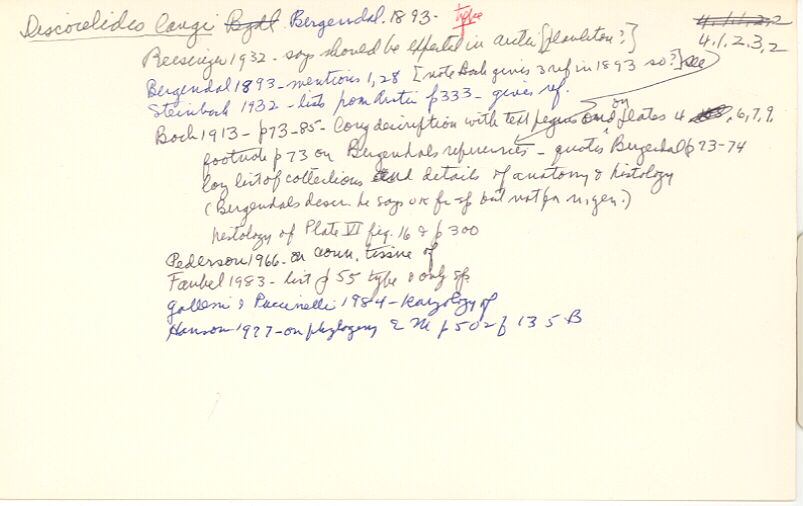 Discocelides langi Bgdl Bergendal. 1893- type 4.1.1.2.2
4.1.2.3,2
1932 - says should be expected in arctic [plankton?]
Bergendal 1893 - mentions 1,28 [note Bock gives 3 ref in 1893 so?] see
Steinbock 1932 - lists from Arctic p333 - gives ref.
Bock 1913 - p73-85 - Long description with text figures and on plates 4, 6, 7, 9,
footnote p 73 on Bergendals references - quotes Bergendal p 73-74
long list of collections and details of anatomy & histology
(Bergendals descr. he says ok for sp but not for n.gen.)
histology of Plate VI fig. 16 & p 300
Pederson 1966 - on conn. tissue of
Faubel 1983 - list p 55 type & only sp
Galleni & Puccinelli 1984 - Karyology of
Hanson 1977 - on phylogeny & p 502 f 13 5 B